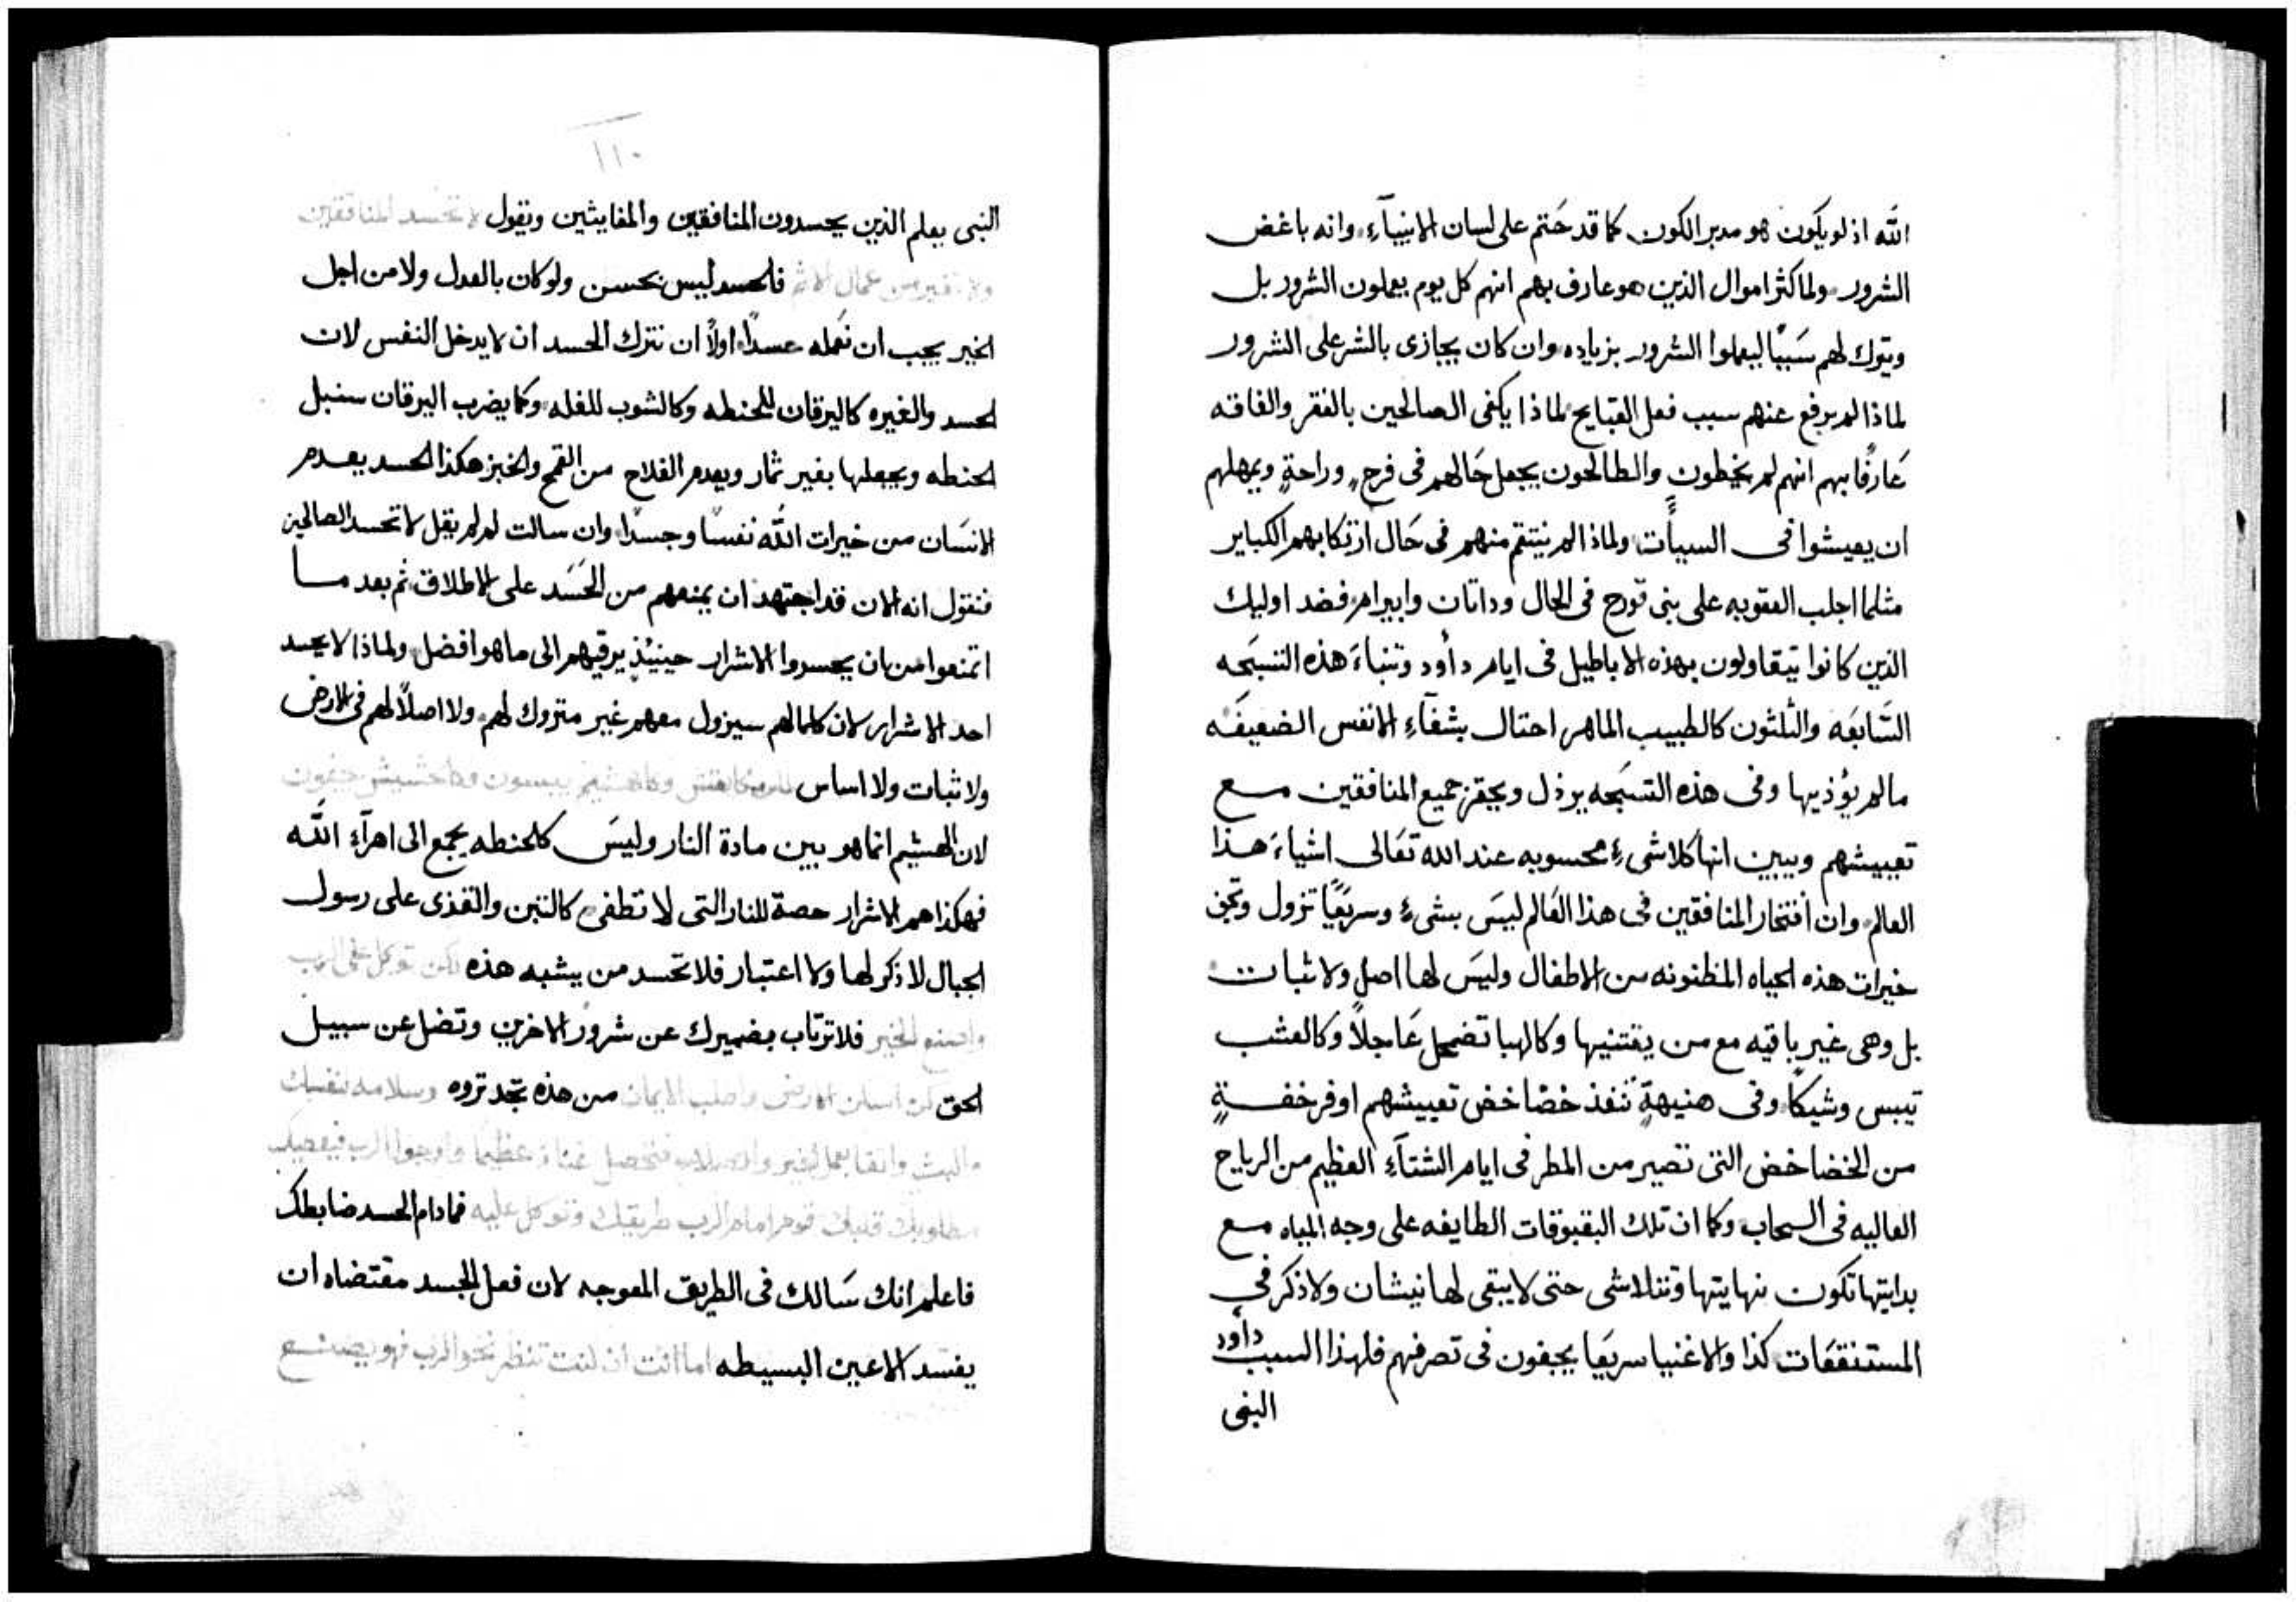 الله اذ لو يكون هو مدبر الكون كما قد حَتم على لسان الانبيآءِ وانه باغض
الشرور ولما كثر اموال الذين هو عارف بهم انهم كل يوم يعملون الشرور بل
ويترك لهم سَببًا ليعملوا الشرور بزياده وان كان يجازى بالشر على الشرور
لماذا لم يرفع عنهم سبب فعل القبايح لماذا يكفى الصالحين بالفقر والفاقه
عَارفًا بهم انهم لم يخطون والطالحون يجعل حَالهم فى فرحٍ وراحةٍ ويمهلهم
ان يعيشوا فى السيأت ولماذا لم ينتقم منهم فى حَال ارتكابهم الكباير
مثلما اجلب العقوبه على بنى قورح فى الحال وداتان وابيرام فضد اوليك
الذين كانوا يتقاولون بهذه الاباطيل فى ايام دأود وتنباءَ هذه التسبَحه
السَابعَه والثلثون كالطبيب الماهر احتال بشفآءِ الانفس الضعيفَه
مالم يؤذيها وفى هذه التسبَحه يرذل ويحقر جميع المنافقين مع
تعييشهم ويبين انها كلاشىءٍ محسوبه عند الله تعَالى اشياءَ هذا
العالم وان أفتخار المنافقين فى هذا العَالم ليسَ بشىءٍ وسريعًا تزول وتجف
خيرات هذه الحياه المظنونه من الاطفال وليسَ لها اصل ولا ثبات
بل وهى غير باقيه مع من يقتنيها وكالهبا تضمحل عَاجلاً وكالعشب
تيبس وشيكًا وفى هنيهةٍ تنفذ خضاخض تعييشهم اوفر خفةٍ
من الخضاخض التى تصير من المطر فى ايام الشتآءِ العظيم من الرياح
العاليه فى السحاب وكما ان تلك البقبوقات الطايفه على وجه المياه مع
بدايتها تكون نهايتها وتتلاشى حتى لا يبقى لها نيشان ولا ذكر فى
المستنقعَات كذا والاغنيا سريعَا يجفون فى تصرفهم فلهذا السبب دأود
النبى
١١٠
النبى يعلم الذين يحسدون المنافقين والمفايثين ويقول لا تحسد المنافقين
ولا تغير من عمال الاثم فالحسد ليس بحسن ولو كان بالعدل ولا من اجل
الخير يجب ان نعَمله عسدًا اولاً ان نترك الحسد ان لا يدخل النفس لان
الحسد والغيره كاليرقان للحنطه وكالشوب للغله وكما يضرب اليرقان سنبل
الحنطه ويجعلها بغير ثمار ويعدم الفلاح من القمح والخبز هكذا الحسد يعدم
الانسَان من خيرات الله نفسًا وجسدًا وان سالت لم لم يقل لا تحسد الصالحين
فنقول انه الان قد اجتهد ان يمنعهم من الحَسَد على الاطلاق ثم بعد ما
اتمنعوا من ان يحسدوا الاشرار حينيئذٍ يرقيهم الى ما هو افضل ولماذا لا يحسد
احد الاشرار لان كلما لهم سيزول معهم غير متروك لهم ولا اصلاً لهم فى الارض
ولا ثبات ولا اساس وكالحشيش يجفون
لان الهشيم انما هو بين مادة النار وليسَ كالحنطه يجمع الى اهرآءِ الله
فهكذا هم الاشرار حصة للنار التى لا تطفى كالتبن والقذى على رسول
الجبال لا ذكر لها ولا اعتبار فلا تحسد من يشبه هذه لكن توكل على الرب
واصنع الخير فلا ترتاب بضميرك عن شرور الاخرين وتضل عن سبيل
الحق لكن اسكن الارض واطلب الايمان من هذه تجد تروه وسلامه لنفسك
مطلوبات قلبك قوم امام الرب طريقك وتوكل عليه فما دام الحسد ضابطك
فاعلم انك سَالك فى الطريق المعوجه لان فعل الحسد مقتضاه ان
يفسد الاعين البسيطه اما انت ان كنت تنظر نحو الرب فهو يصنع